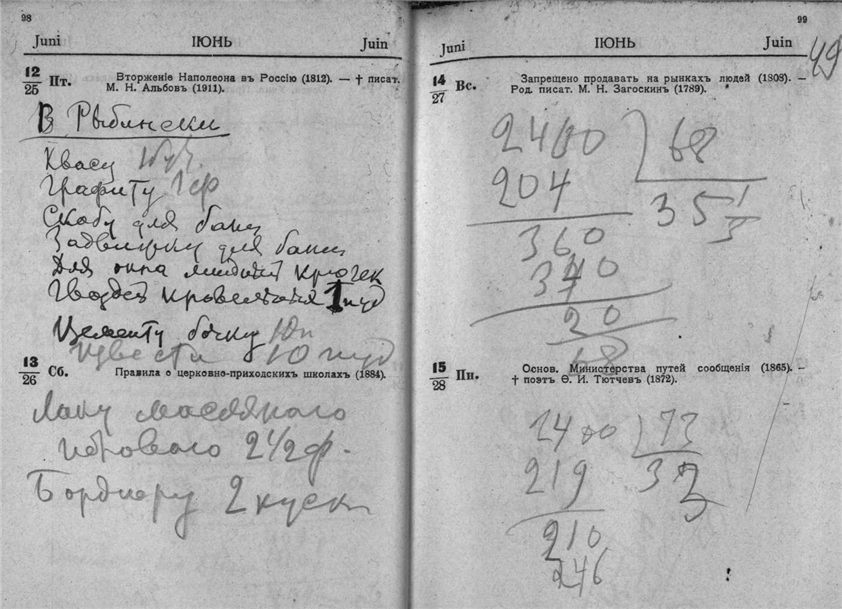 98
Juni ІЮНЬ Juin
12/25 Пт. Вторженіе Наполеона въ Россію (1812). — † писат.
М. Н. Альбовъ (1911).
В Рыбински
Квасу
Графиту 1 ф
Скобу для бани
Задвижку для бани
Для окна медный крючек
Гвоздей кровельных 1 пуд
Цементу бочку 10 п
Извести 10 пуд
13/26 Сб. Правила о церковно-приходскихъ школахъ (1884).
Лаку масляного
2 1/2 ф.
Бордюру 2 куска
99
49
Juni ІЮНЬ Juin
14/27 Вс. Запрещено продавать на рынкахъ людей (1808). —
Род. писат. М. Н. Загоскинъ (1789).
2400 68
204 35 1/3
360
340
20
68
15/28 Пн. Основ. Министерства путей сообщенія (1865). —
† поэтъ Ѳ. И. Тютчевъ (1872).
2400 73
219 3
210
246